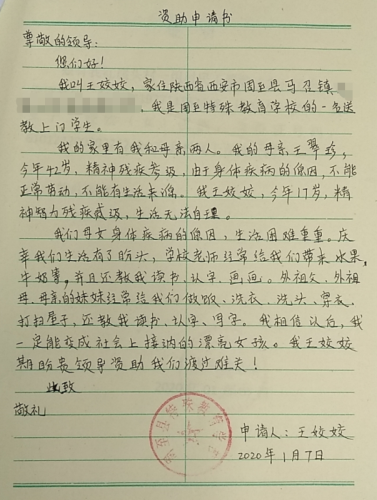 资助申请书
尊敬的领导:
您们好!
我叫王姣姣,家住陕西省西安市周至县马召镇
我是周至特殊教育学校的一名送
教上门学生。
我的家里有我和母亲两人。我的母亲王翠珍,
今年42岁,精神残疾叁级,由于身体疾病的原因,不能
正常劳动,不能有生活来源。我王姣姣,今年17岁,精
神智力残疾贰级,生活无法自理。
我们母女身体疾病的原因,生活困难重重。庆
幸我们生活有了盼头,学校老师经常给我们带来水果,
牛奶等,并且还教我读书、认字、画画。外祖父、外祖
母、母亲的妹妹经常给我们做饭、洗衣、洗头、穿衣、
打扫屋子,还教我读书、认字、写字。我相信以后,我
一定能变成社会上接纳的漂亮女孩。我王姣姣
期盼贵领导资助我们渡过难关!
此致
敬礼
周至县特殊教育学校
申请人:王姣姣
2020年1月7日